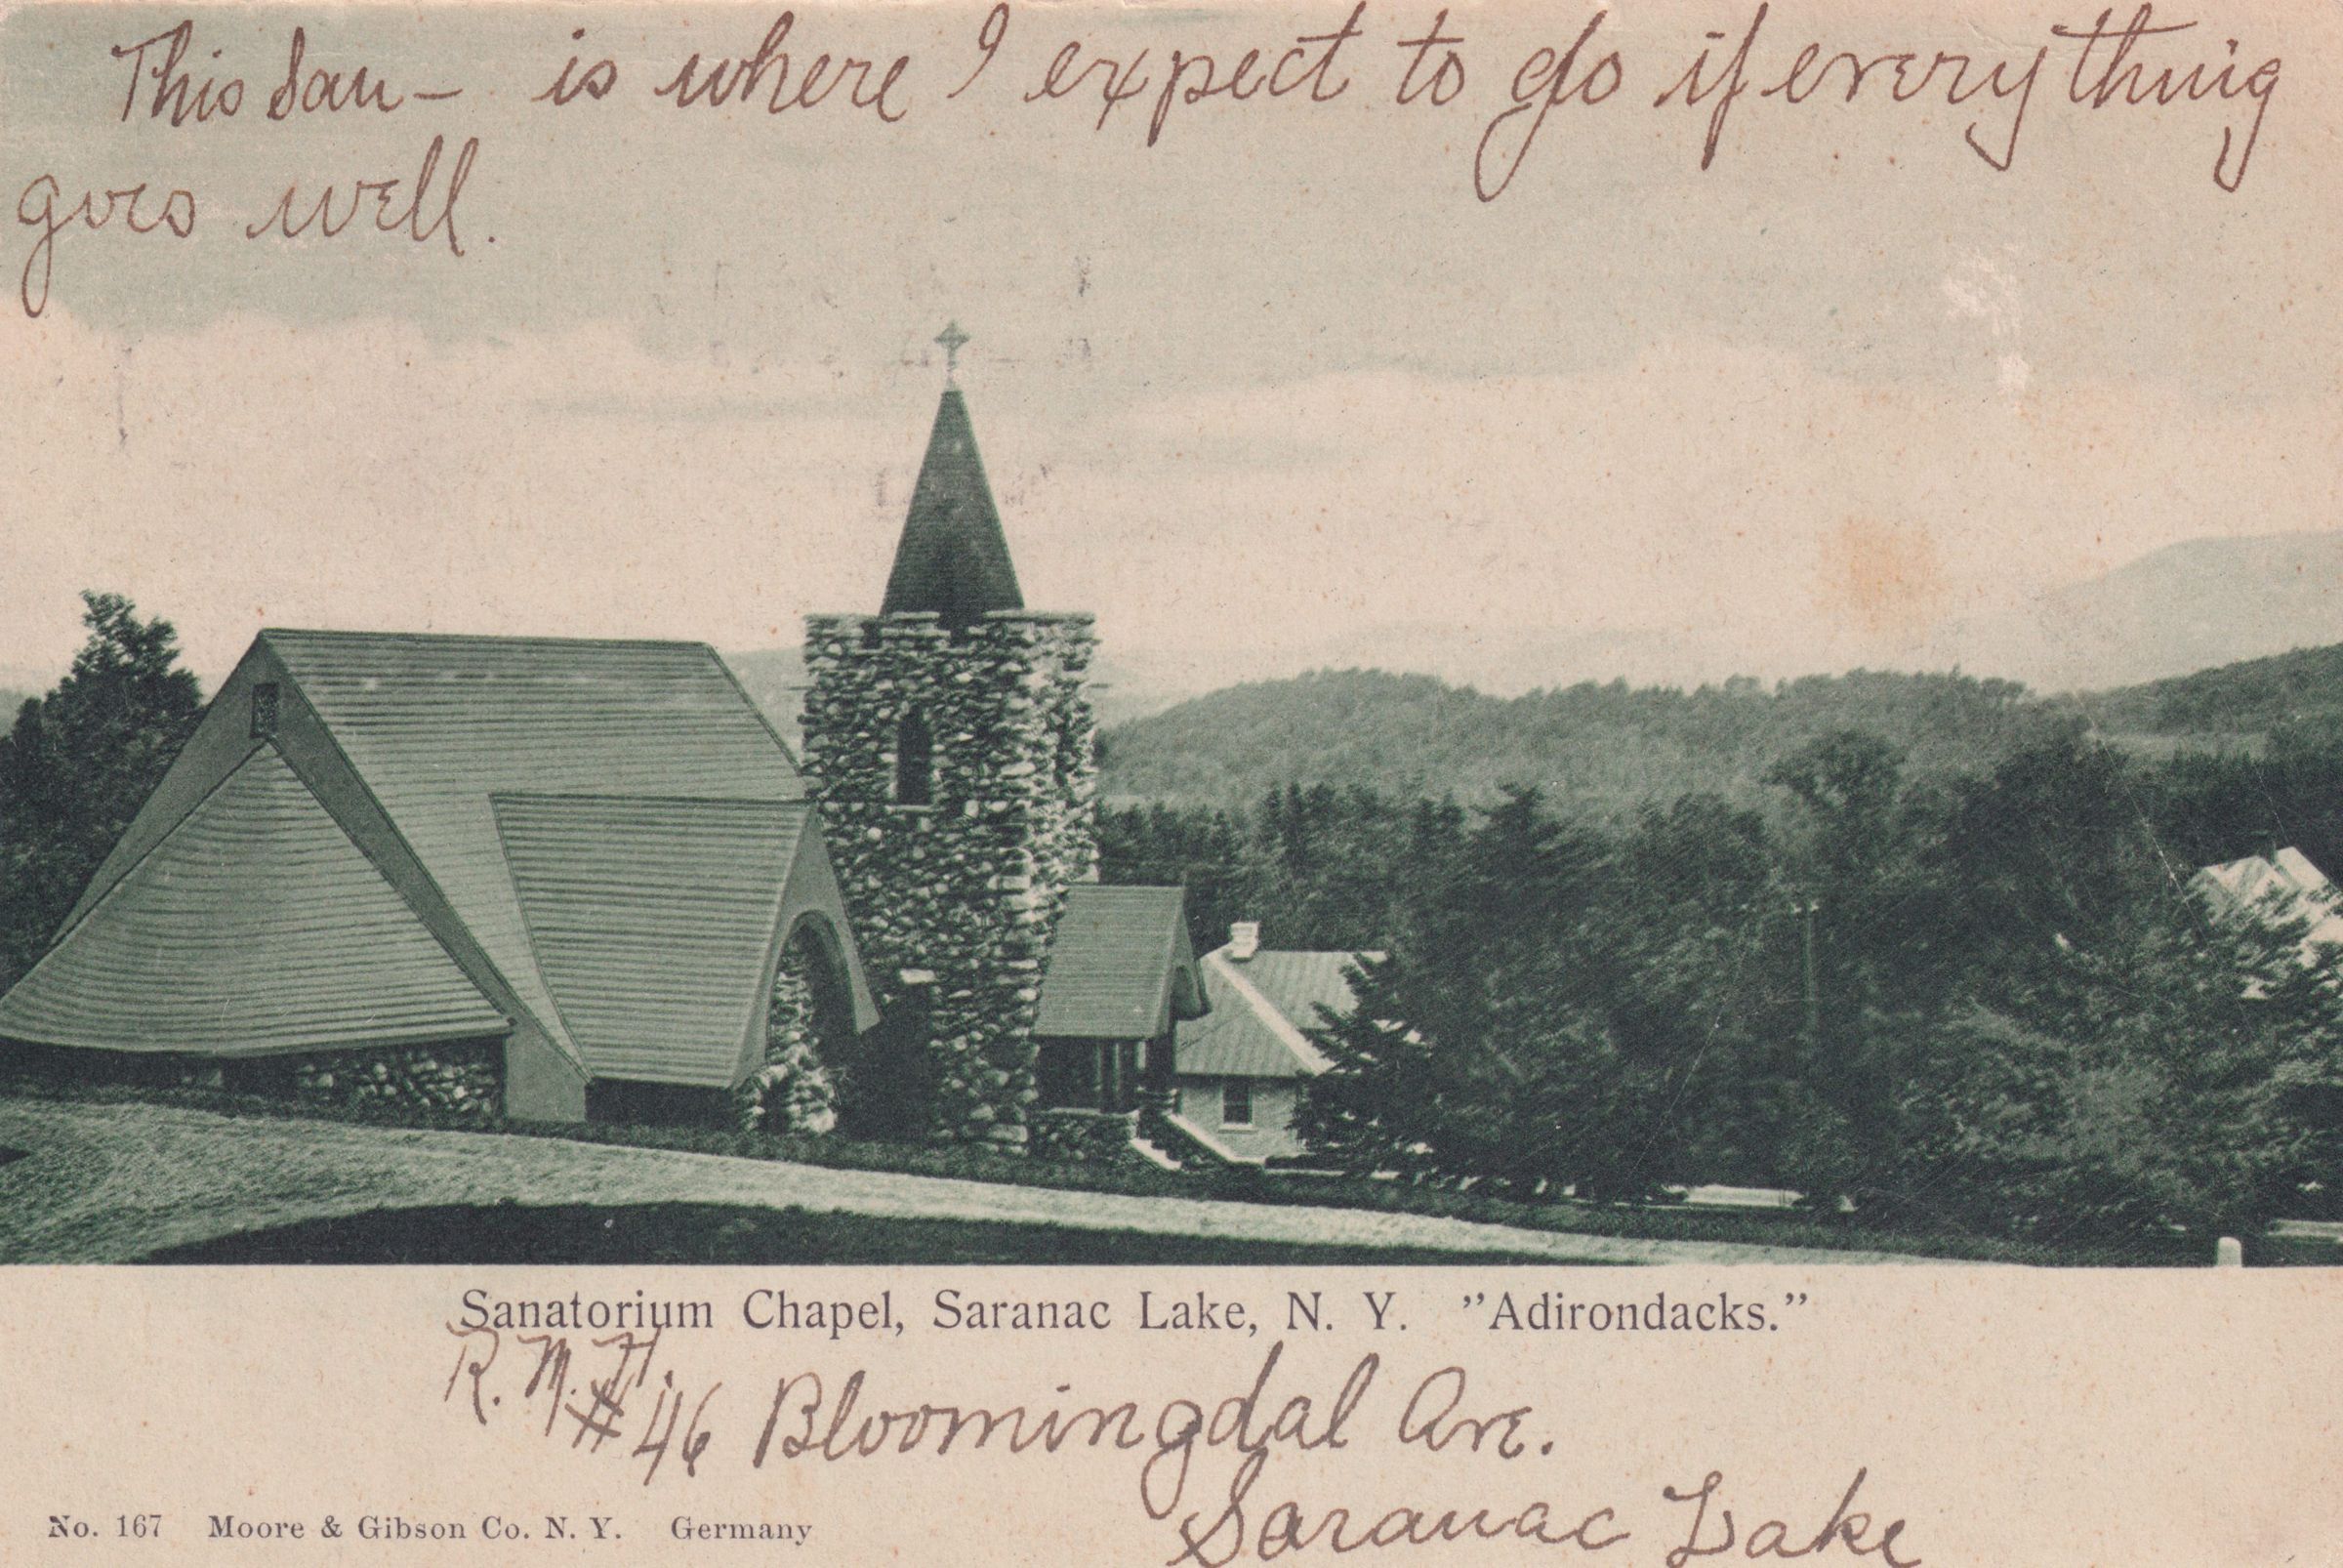 This San- is where I expect to go if everything
goes well.
Sanatorium Chapel, Saranac Lake, N. Y. "Adirondacks."
R. M. H.
#46 Bloomingdal Ave.
Saranac Lake
No. 167 Moore & Gibson Co. N. Y. Germany